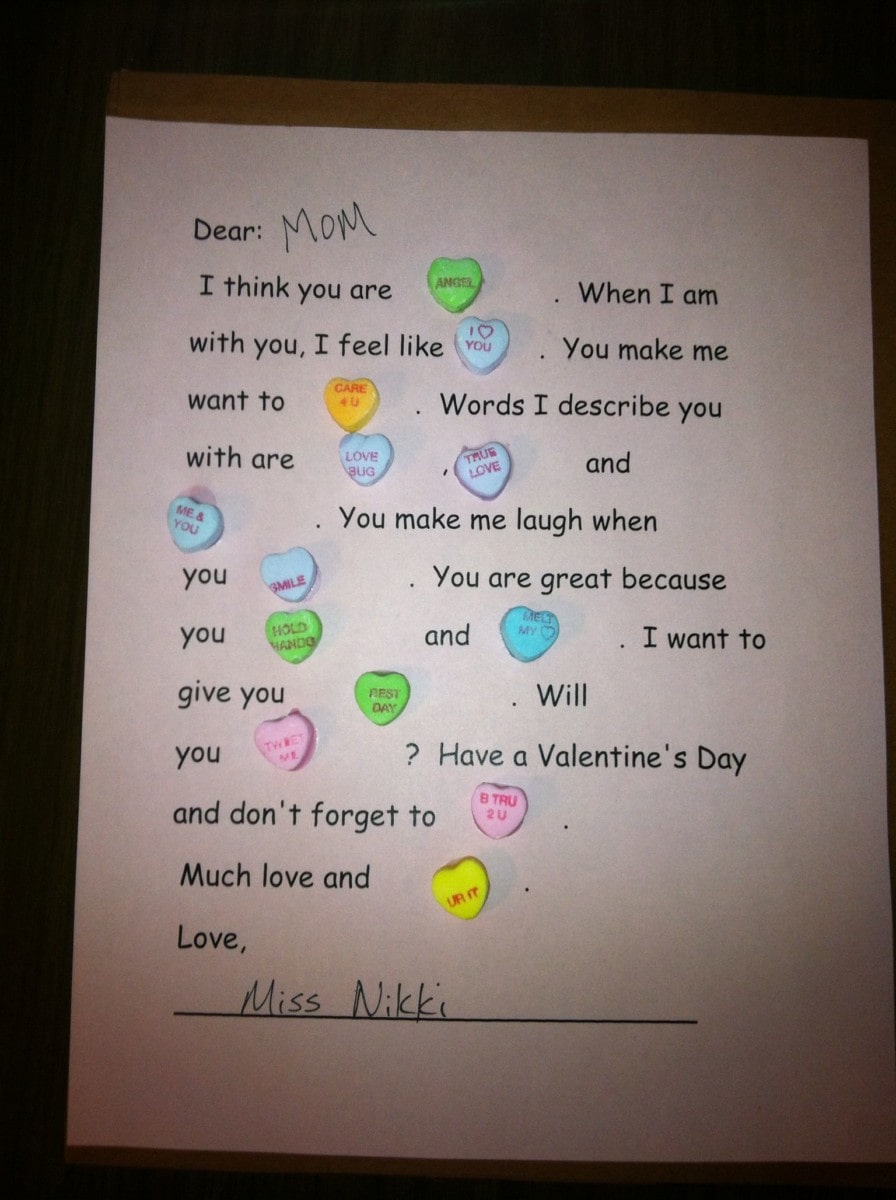 Dear: MOM
I think you are ANGEL . When I am
with you, I feel like I ♡ YOU . You make me
want to CARE 4 U . Words I describe you
with are LOVE BUG , TRUE LOVE and
ME & YOU . You make me laugh when
you SMILE . You are great because
you HOLD HANDS and MELT MY ♡ . I want to
give you BEST DAY . Will
you TWEET ME ? Have a Valentine's Day
and don't forget to B TRU 2 U .
Much love and UR IT .
Love,
Miss Nikki